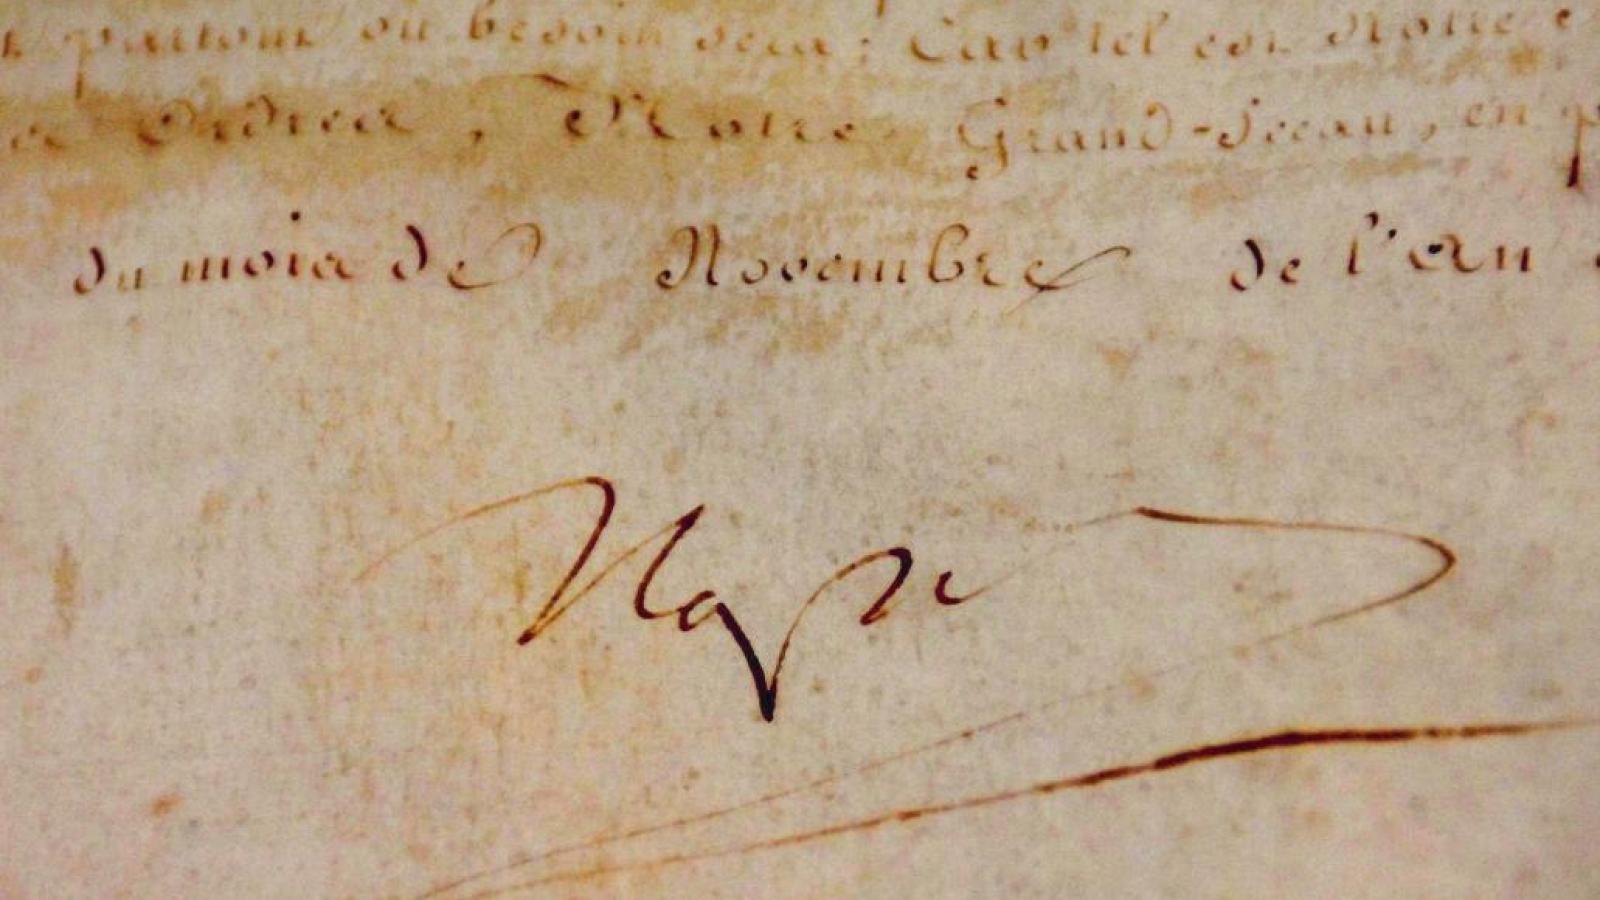 partout où besoin sera; Car tel est Notre
Ordres, Notre Grand-Sceau, en
du mois de Novembre de l'an
Nap